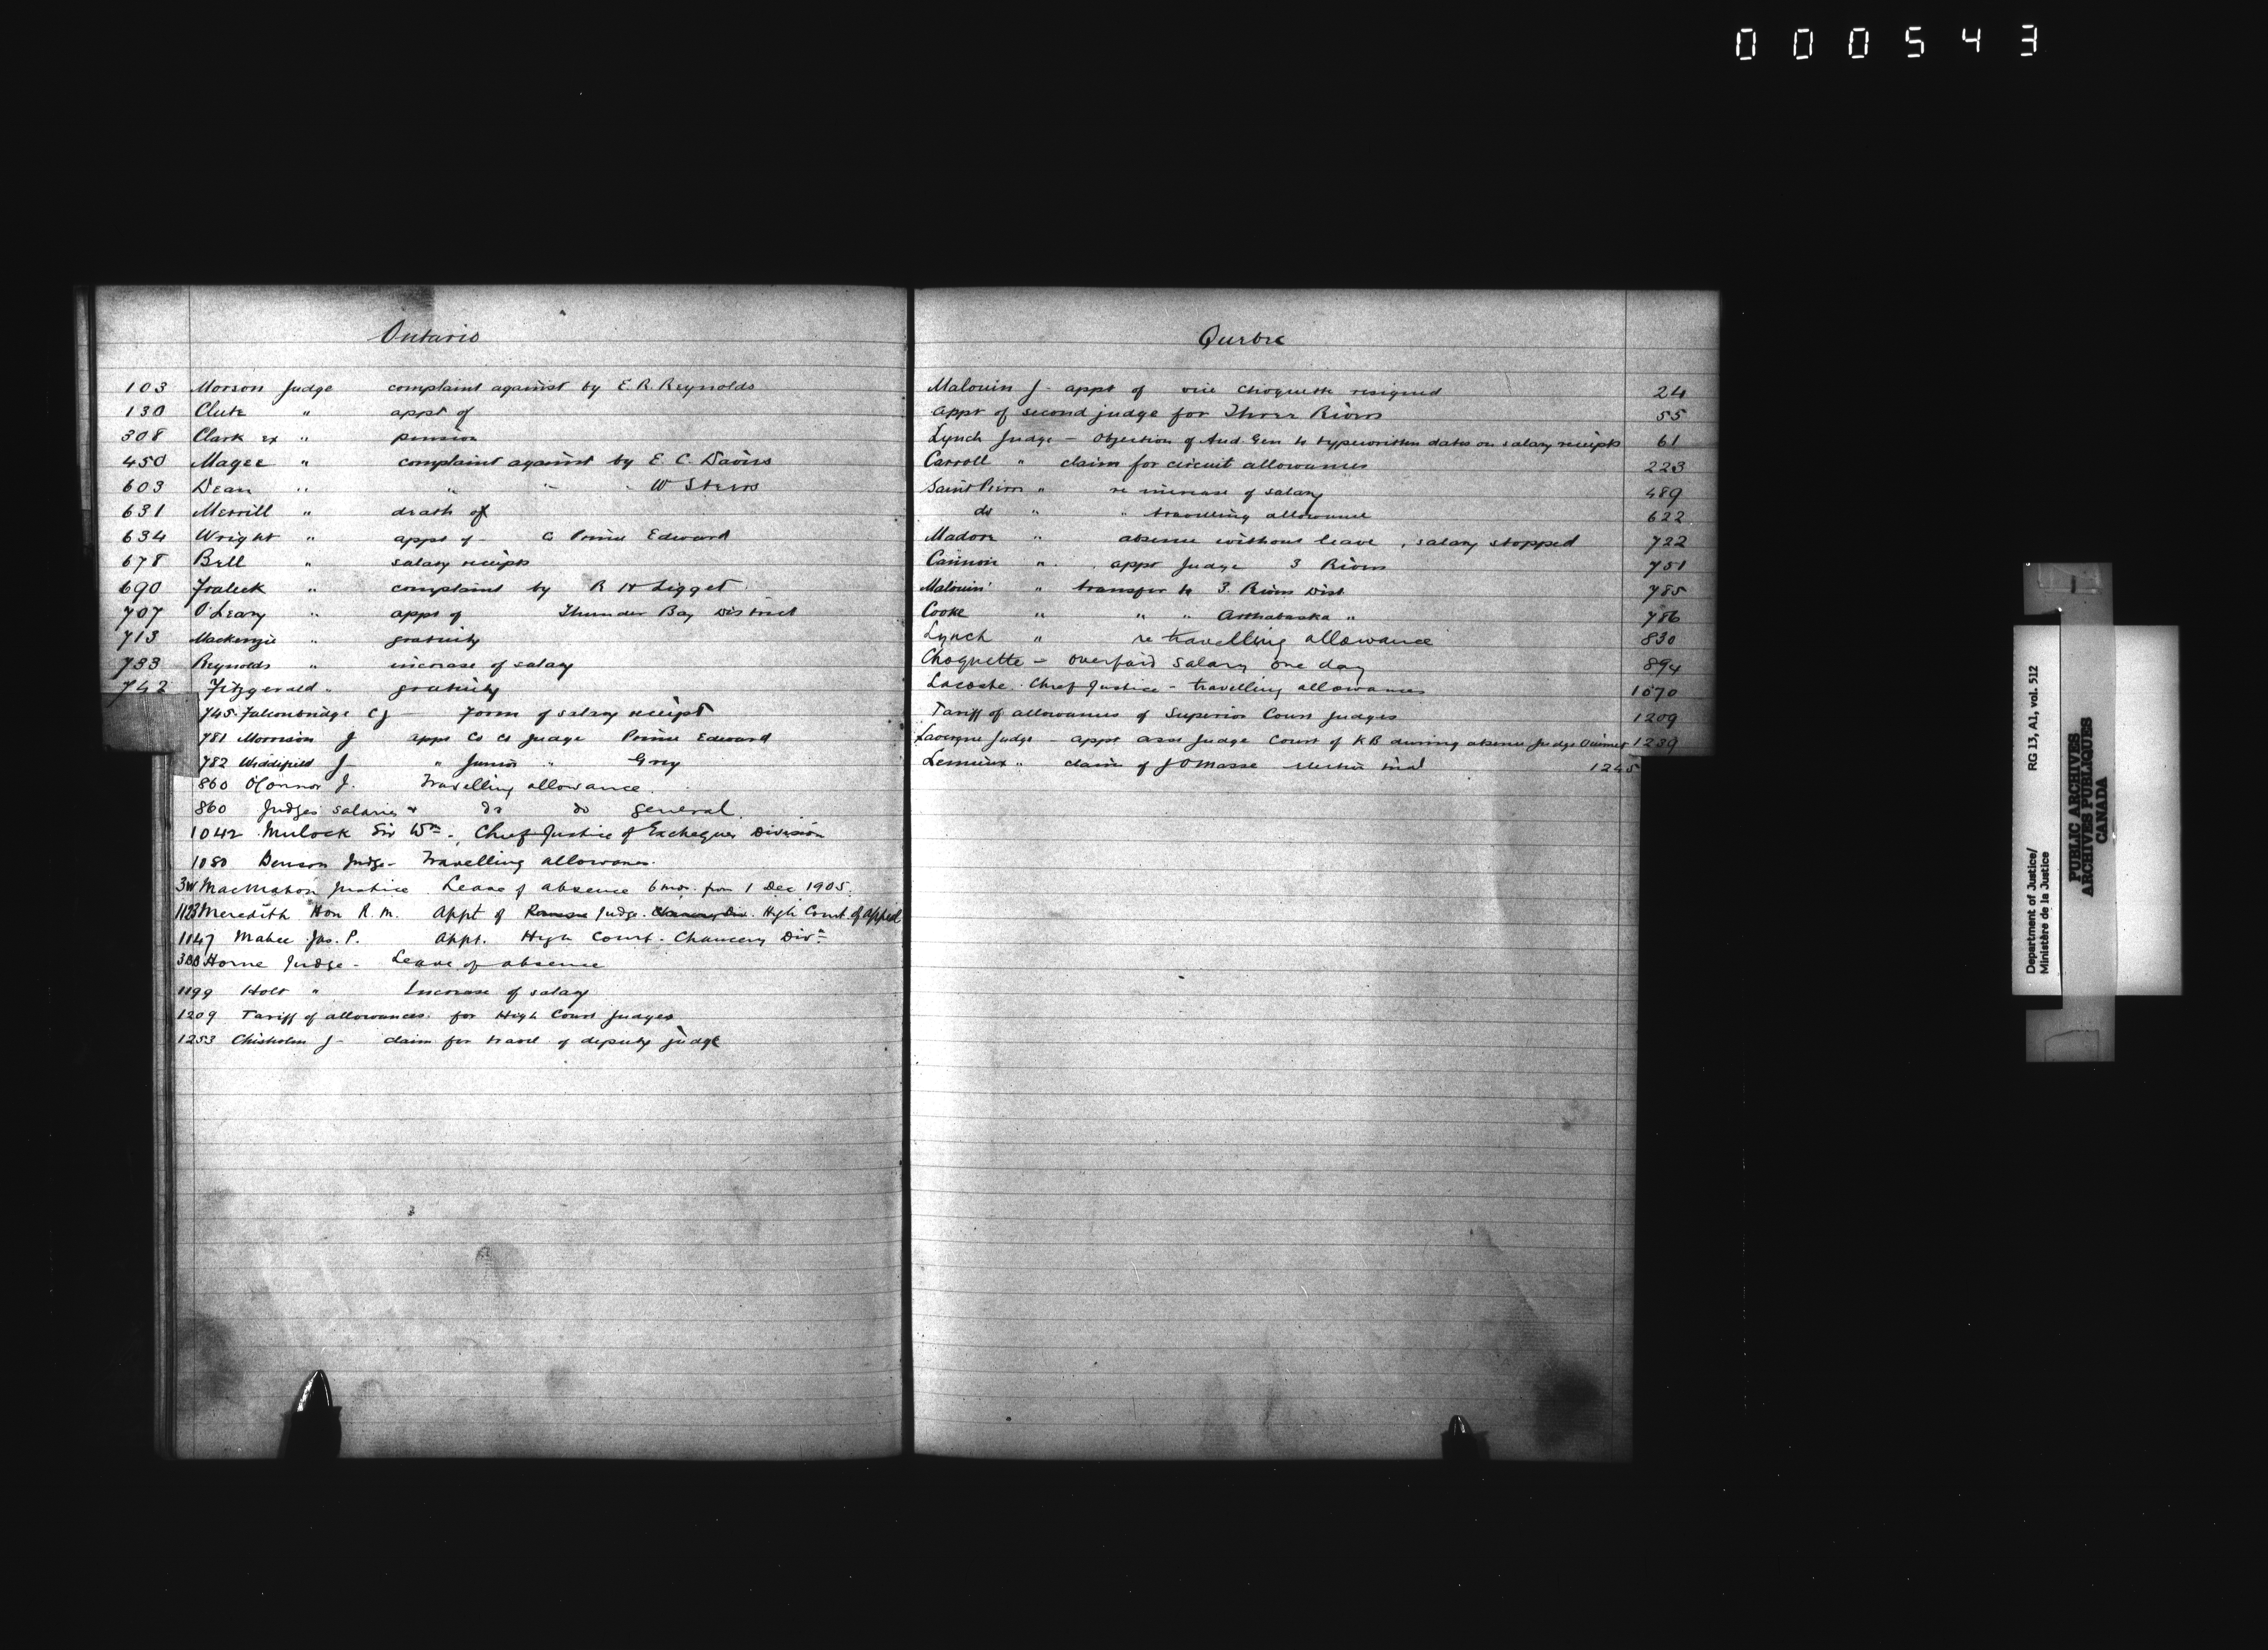 000543
Ontario
103 Morson Judge complaint against by E. R. Reynolds
130 Clute " appt of
308 Clark ex " pension
450 Magee " complaint against by E. C. Davies
603 Dean " " " " W Sterns
631 Merrill " death of
634 Wright " appt of - Co Prince Edward
678 Bell " salary receipts
690 Fraleck " complaint by R H Ligget
707 O'Leary " appt of Thunder Bay District
713 Mackenzie " gratuity
733 Reynolds " increase of salary
742 Fitzgerald " gratuity
745 Falconbridge CJ - Form of salary receipt
781 Morrison J appt Co Ct Judge Prince Edward
782 Widdifield J - " Junior " Grey
860 O'Connor J. Travelling allowance.
860 Judges salaries & do do general.
1042 Mulock Sir Wm. Chief Justice of Exchequer Division
1080 Benson Judge - Travelling allowance.
MacMahon Justice. Leave of absence 6 mos. from 1 Dec 1905.
1123 Meredith Hon R. M. Appt of Judge. High Court of Appeal
1147 Mabee Jas. P. Appt. High Court - Chancery Divn.
Horne Judge - Leave of absence
1199 Holt " Increase of salary
1209 Tariff of allowances for High Court Judges
1253 Chisholm J - claim for travel of deputy judge
Quebec
Malouin J - appt of vice Choquette resigned 24
Appt of second judge for Three Rivers 55
Lynch Judge - Objection of Aud. Gen to typewritten dates on salary receipts 61
Carroll " claim for circuit allowances 223
Saint Pierre " re increase of salary 489
do " " travelling allowance 622
Madore " absence without leave, salary stopped 722
Cannon " appt Judge 3 Rivers 751
Malouin " transfer to 3 Rivers Dist. 785
Cooke " " " Arthabaska " 786
Lynch " re travelling allowance 830
Choquette - overpaid salary one day 894
Lacoste Chief Justice - travelling allowances 1070
Tariff of allowances of Superior Court Judges 1209
Lavergne Judge - appt asst Judge Court of KB during absence Judge Ouimet 1239
Lemieux " claim of J O Masse election trial 1245
Department of Justice/ RG 13, A1, vol. 512
Ministère de la Justice
PUBLIC ARCHIVES
ARCHIVES PUBLIQUES
CANADA